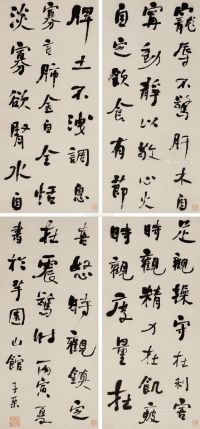 寵辱不驚肝木自
寧動靜以敬心火
自定飲食有節
脾土不洩調息
寡言肺金自全恬
淡寡欲腎水自
足觀操守在利害
時觀精力在飢疲
時觀度量在
喜怒時觀鎮定
在震驚時 丙寅夏
書於芋園山館